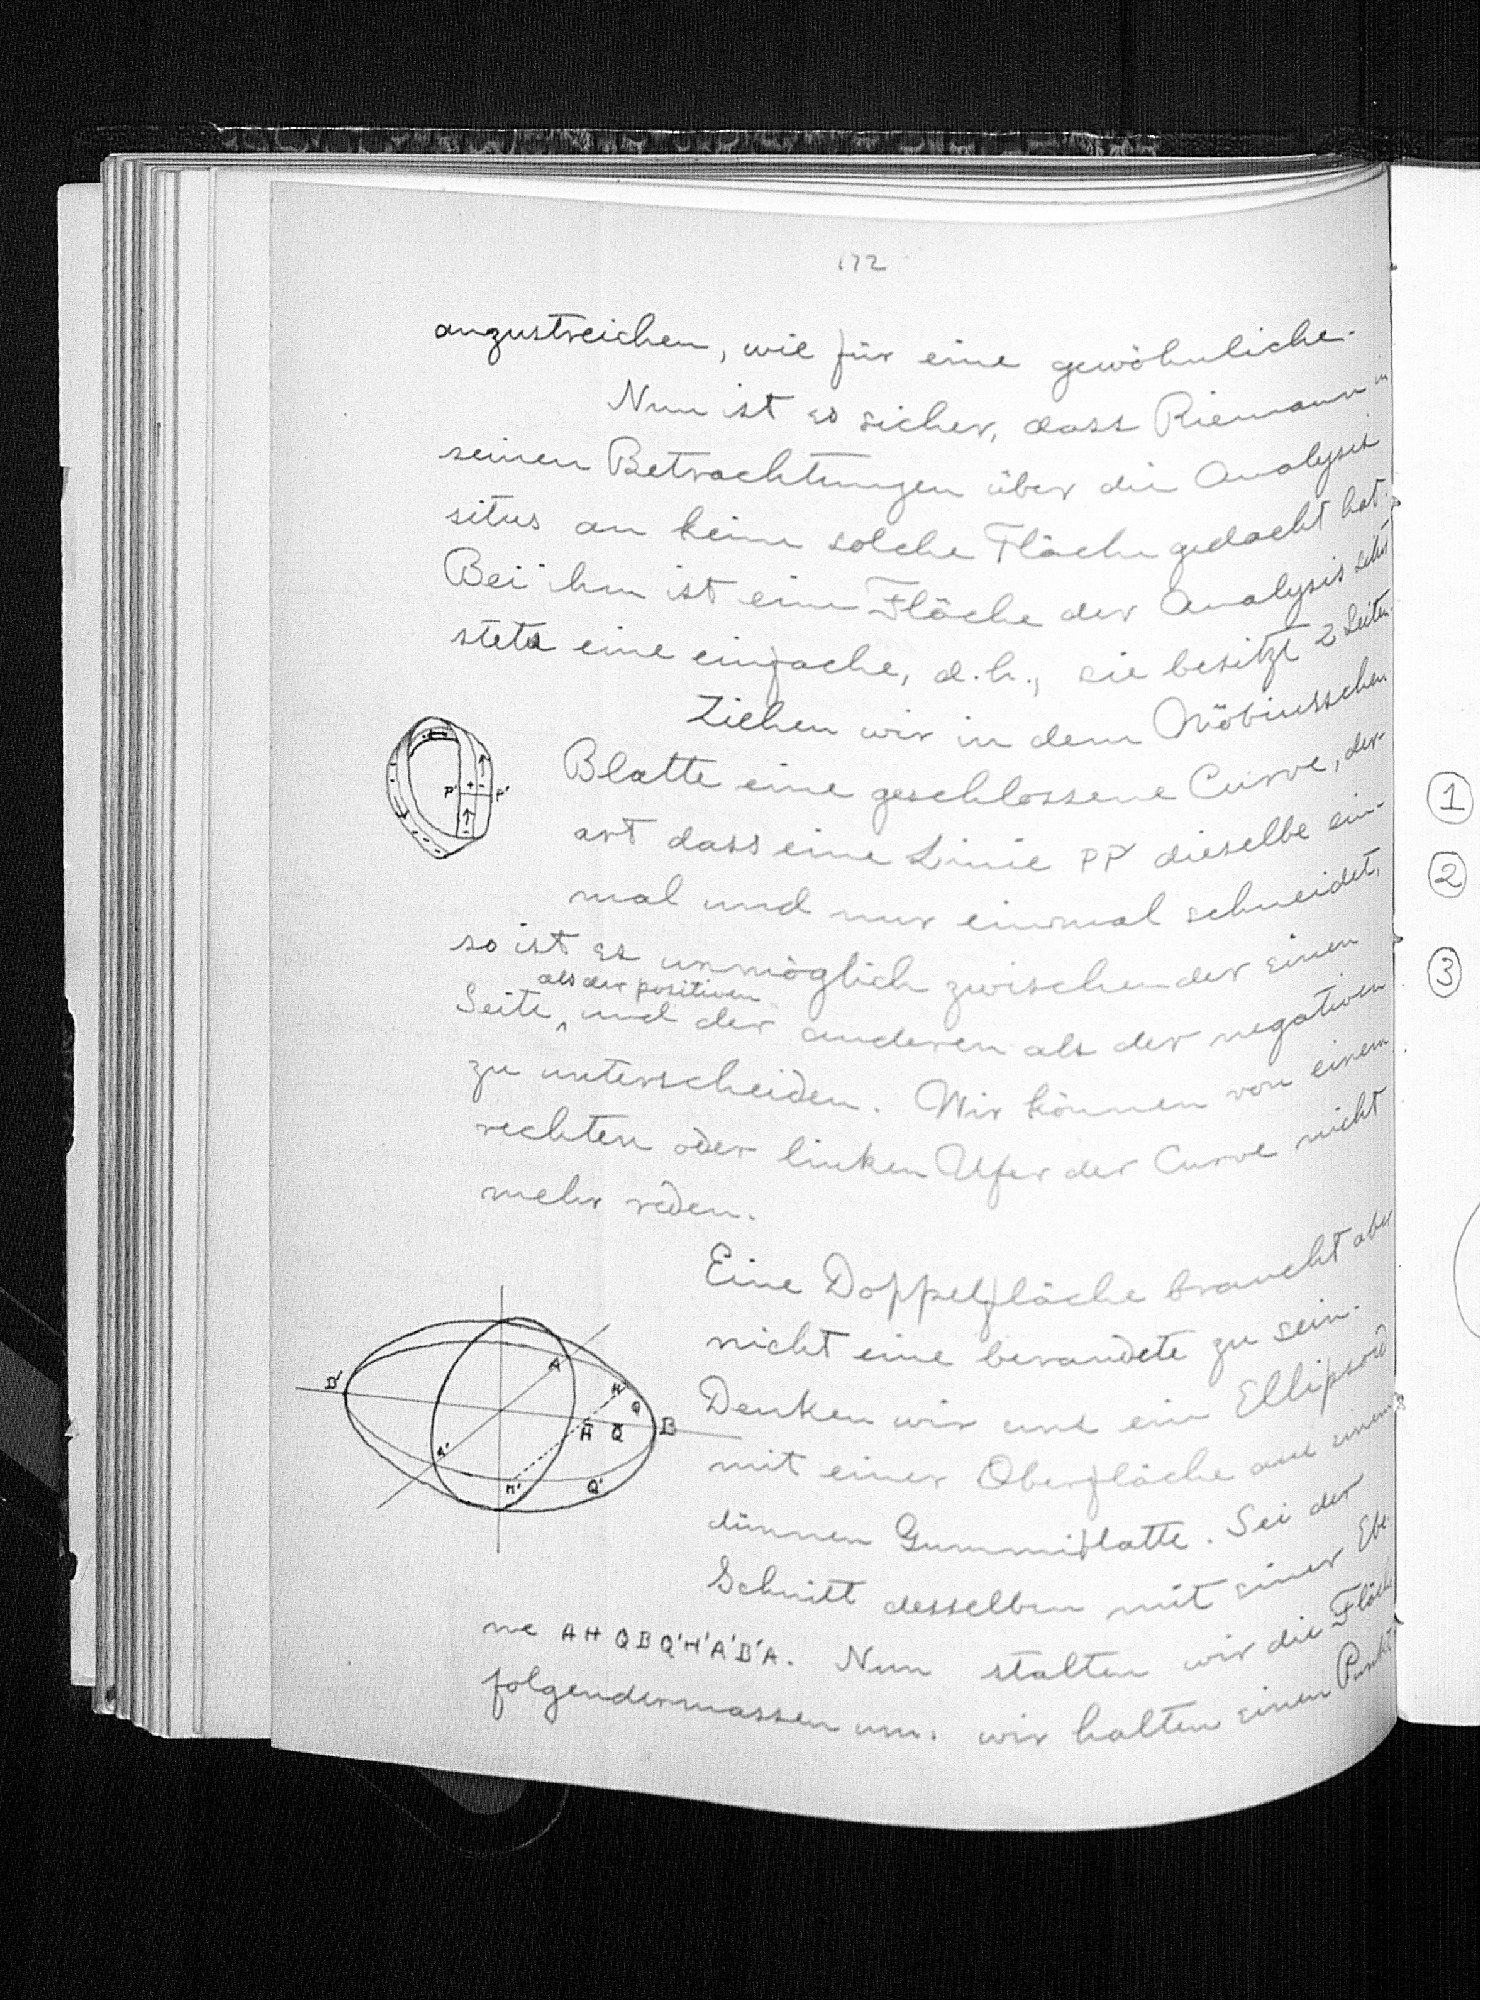 172
anzustreichen, wie für eine gewöhnliche.
Nun ist es sicher, dass Riemann in
seinen Betrachtungen über die Analysis
situs an keine solche Fläche gedacht hat.
Bei ihm ist eine Fläche der Analysis situs
stets eine einfache, d.h., sie besitzt 2 Seiten.
Ziehen wir in dem Möbiusschen
Blatte eine geschlossene Curve, der-
art dass eine Linie PP' dieselbe ein-
mal und nur einmal schneidet,
so ist es unmöglich zwischen der einen
als der positiven
Seite, und der anderen als der negativen
zu unterscheiden. Wir können von einem
rechten oder linken Ufer der Curve nicht
mehr reden.
Eine Doppelfläche braucht aber
nicht eine berandete zu sein.
Denken wir uns ein Ellipsoid
mit einer Oberfläche aus einer
dünnen Gummiplatte. Sei der
Schnitt desselben mit einer Ebe-
ne AHQBQ'H'A'B'A. Nun stalten wir die Fläche
folgendermassen um: wir halten einen Punkt
P' + - P'
-
B' A H Q B
A' H Q
H' Q'
1
2
3